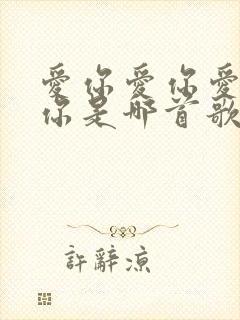 愛你愛你愛
你是哪首歌
許辭涼